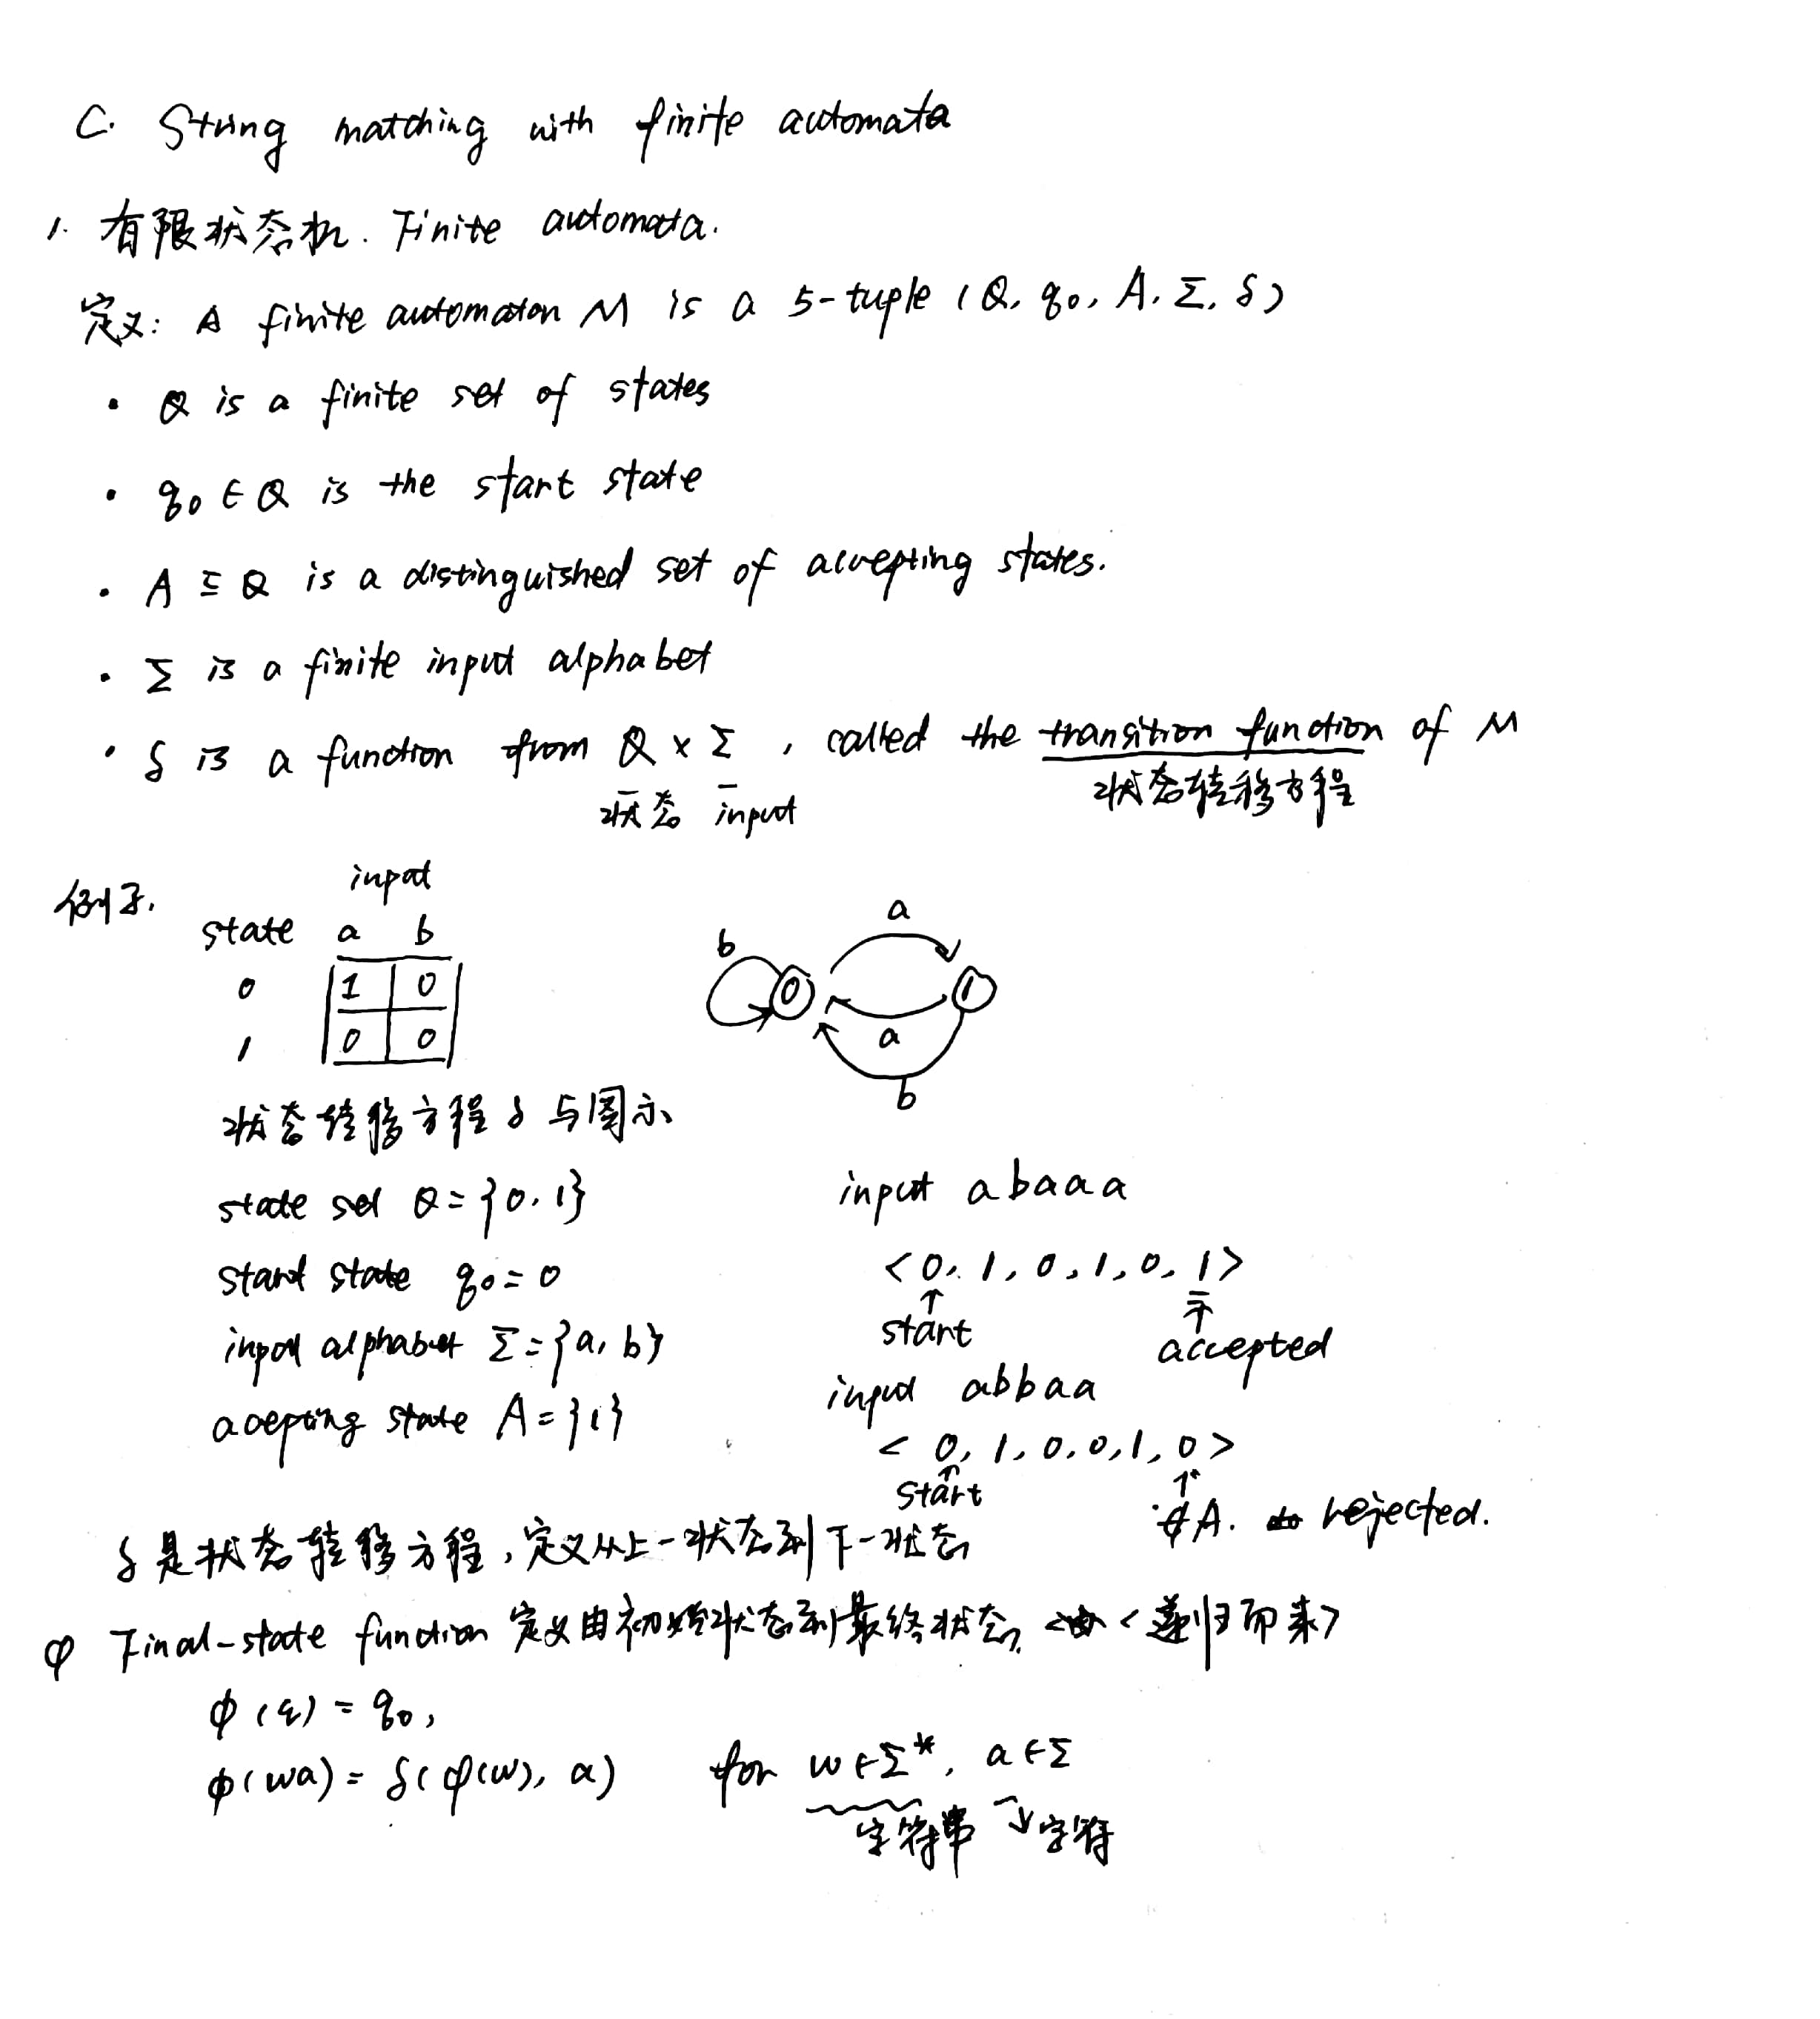 C. String matching with finite automata
1. 有限状态机. Finite automata.
定义: A finite automaton M is a 5-tuple (Q, q0, A, Σ, δ)
• Q is a finite set of states
• q0 ∈ Q is the start state
• A ⊆ Q is a distinguished set of accepting states.
• Σ is a finite input alphabet
• δ is a function from Q × Σ , called the transition function of M
状态 input 状态转移方程
例子.
input
state a b
0 1 0
1 0 0
a
b
0 1
a
b
状态转移方程 δ 与图示
state set Q = {0, 1}
start state q0 = 0
input alphabet Σ = {a, b}
acepting state A = {1}
input abaaa
<0, 1, 0, 1, 0, 1>
start accepted
input abbaa
< 0, 1, 0, 0, 1, 0 >
start ∉A. rejected.
δ 是状态转移方程, 定义从上一状态到下一状态
φ Final-state function 定义由初始状态到最终状态, <递归而来>
φ(ε) = q0,
φ(wa) = δ(φ(w), a) for w ∈ Σ*, a ∈ Σ
字符串 字符